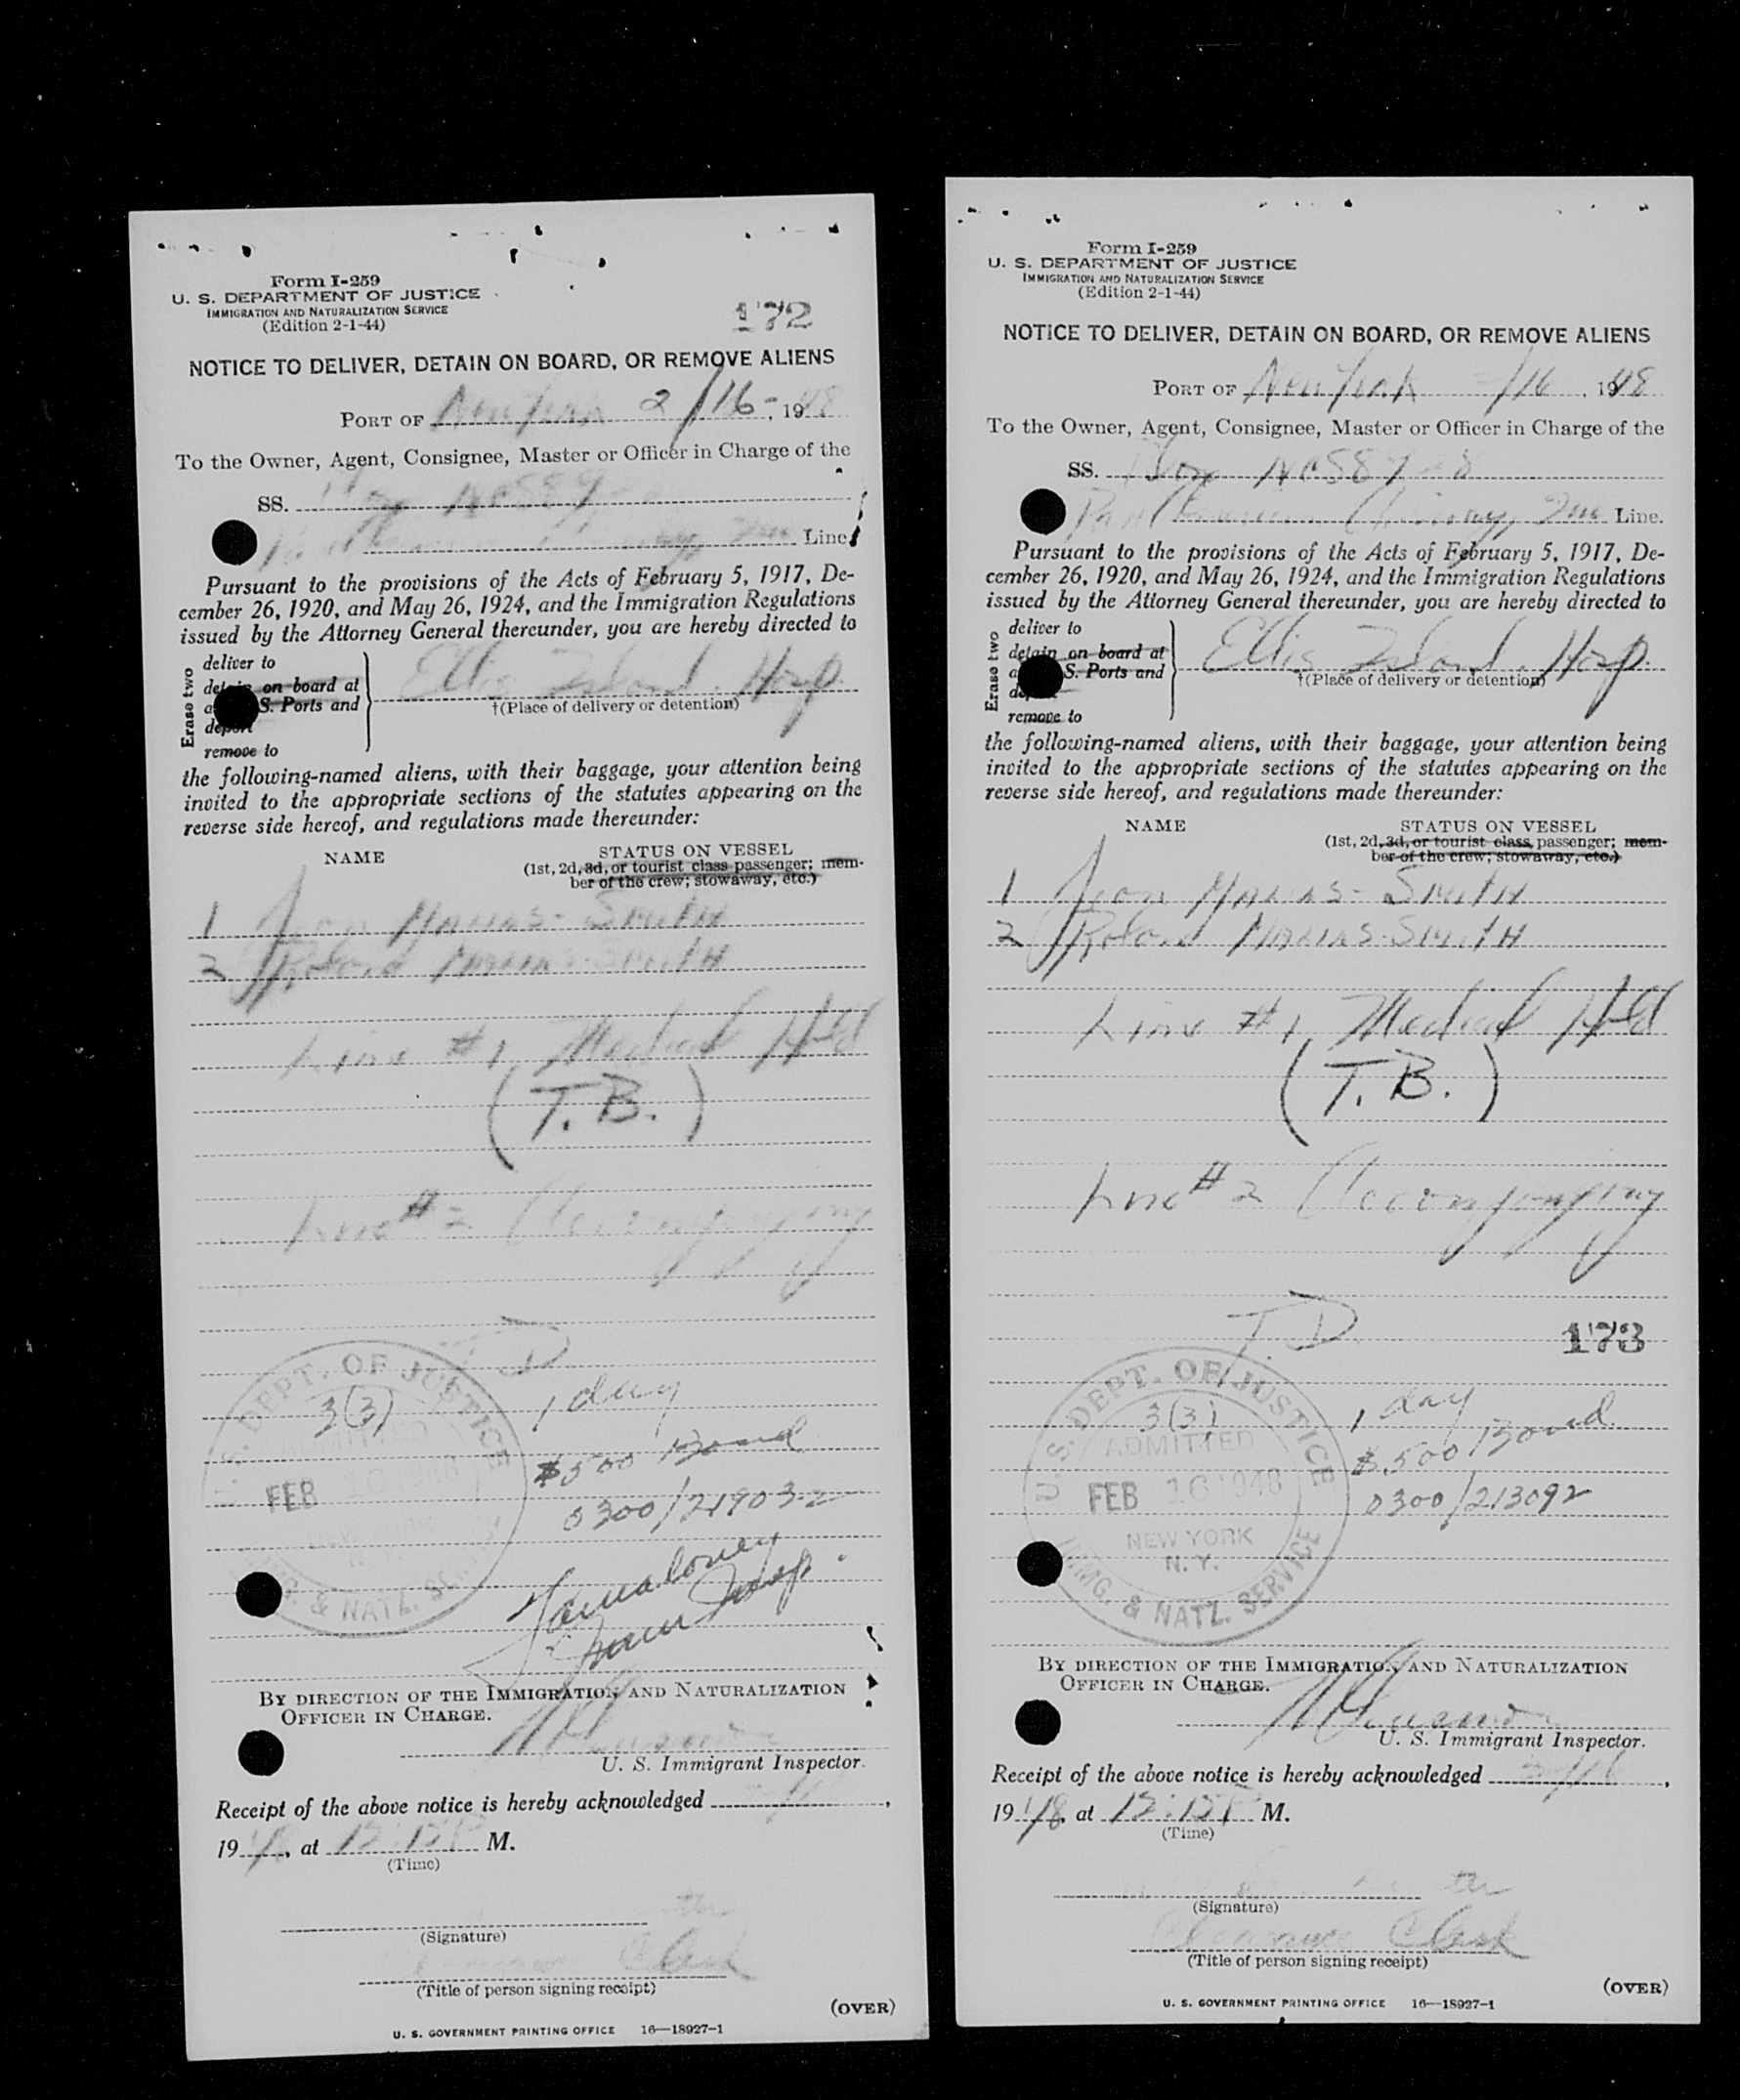 Form I-259
U. S. DEPARTMENT OF JUSTICE
IMMIGRATION AND NATURALIZATION SERVICE
(Edition 2-1-44)
172
NOTICE TO DELIVER, DETAIN ON BOARD, OR REMOVE ALIENS
PORT OF New York 2/16-, 1948
To the Owner, Agent, Consignee, Master or Officer in Charge of the
SS. NC 889
Line
Pursuant to the provisions of the Acts of February 5, 1917, De-
cember 26, 1920, and May 26, 1924, and the Immigration Regulations
issued by the Attorney General thereunder, you are hereby directed to
Erase two
deliver to
detain on board at
S. Ports and
deport
remove to
Ellis Island. Hosp.
†(Place of delivery or detention)
the following-named aliens, with their baggage, your attention being
invited to the appropriate sections of the statutes appearing on the
reverse side hereof, and regulations made thereunder:
NAME
STATUS ON VESSEL
(1st, 2d, 3d, or tourist class passenger; mem-
ber of the crew; stowaway, etc.)
1 Jean Smith
2 Roland Smith
Line #1, Medical Hold
(T.B.)
Line #2 Accompanying
T. D
U. S. DEPT. OF JUSTICE
3(3)
ADMITTED
FEB 16 1948
IMMG. & NATZ. SERVICE
1 day
$500 Bond
0300/219032
BY DIRECTION OF THE IMMIGRATION AND NATURALIZATION
OFFICER IN CHARGE.
U. S. Immigrant Inspector.
Receipt of the above notice is hereby acknowledged
1948, at 12:15P M.
(Time)
(Signature)
Clerk
(Title of person signing receipt)
(OVER)
U. S. GOVERNMENT PRINTING OFFICE 16—18927-1
Form I-259
U. S. DEPARTMENT OF JUSTICE
IMMIGRATION AND NATURALIZATION SERVICE
(Edition 2-1-44)
NOTICE TO DELIVER, DETAIN ON BOARD, OR REMOVE ALIENS
PORT OF New York /16, 1948
To the Owner, Agent, Consignee, Master or Officer in Charge of the
SS. NC
Line.
Pursuant to the provisions of the Acts of February 5, 1917, De-
cember 26, 1920, and May 26, 1924, and the Immigration Regulations
issued by the Attorney General thereunder, you are hereby directed to
Erase two
deliver to
detain on board at
S. Ports and
remove to
Ellis Island. Hosp.
†(Place of delivery or detention)
the following-named aliens, with their baggage, your attention being
invited to the appropriate sections of the statutes appearing on the
reverse side hereof, and regulations made thereunder:
NAME
STATUS ON VESSEL
(1st, 2d, 3d, or tourist class passenger; mem-
ber of the crew; stowaway, etc.)
1 Jean Smith
2 Roland Smith
Line #1, Medical Hold
(T.B.)
Line #2 Accompanying
T. D
173
U. S. DEPT. OF JUSTICE
3(3)
ADMITTED
FEB 16 1948
NEW YORK
N. Y.
IMMG. & NATZ. SERVICE
1 day
$.500 Bond
0300/213092
BY DIRECTION OF THE IMMIGRATION AND NATURALIZATION
OFFICER IN CHARGE.
U. S. Immigrant Inspector.
Receipt of the above notice is hereby acknowledged 2/16,
1948, at 12:15P M.
(Time)
(Signature)
Clearance Clerk
(Title of person signing receipt)
(OVER)
U. S. GOVERNMENT PRINTING OFFICE 16—18927-1